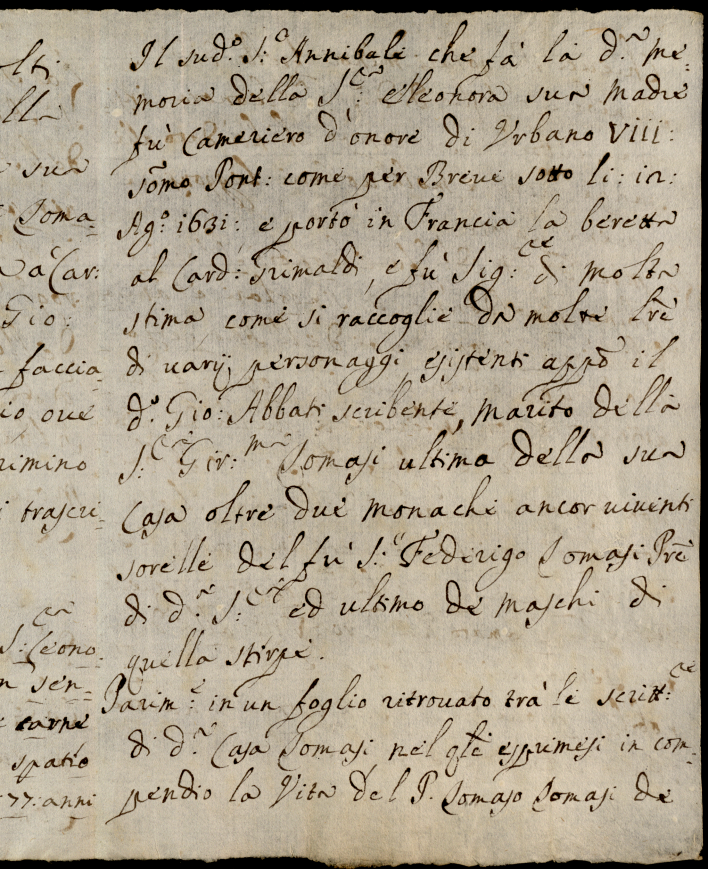 lti
lla
sua
Toma-
a a Car:
Gio:
faccia-
io oue
rimino
i trascri-
S:ra Leono:
n sen-
e carne
spatio
77: anni
Il sud.o S.e Annibale che fà la d.a me-
moria della S.ra Eleonora sua Madre
fù Cameriero d'onore di Vrbano VIII:
sõmo Pont: come per Breue sotto li: 12:
Ag.o 1631: e portò in Francia la beretta
al Card: Grimaldi, e fù Sig:re di molta
stima come si raccoglie da molte lrẽ
di uarij personaggi esistenti appõ il
d.o Gio: Abbati scribente, marito della
S.ra Gir:ma Tomasi ultima della sua
Casa oltre due monache ancor uiuenti
sorelle del fù S.e Federigo Tomasi Prẽ
di d.a S.ra ed ultimo de maschi di
quella stirpe.
Parim:e in un foglio ritrouato trà le scritt:re
di d.a Casa Tomasi, nel qlẽ esprimesi in com-
pendio la Vita del P. Tomaso Tomasi de